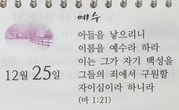 예수
아들을 낳으리니
이름을 예수라 하라
이는 그가 자기 백성을
그들의 죄에서 구원할
자이심이라 하니라
(마 1:21)
12월 25일